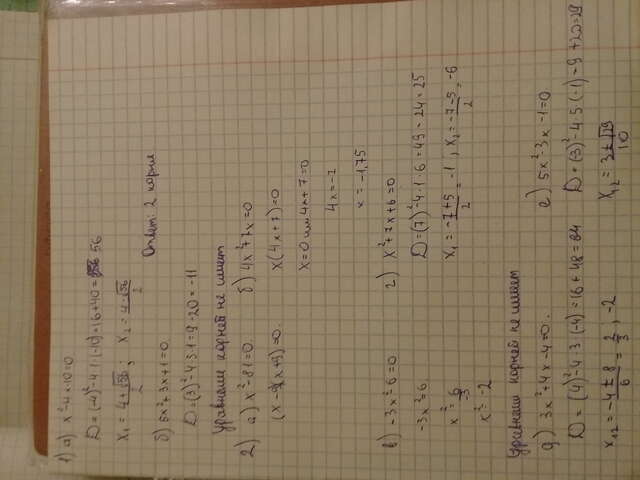 1) а) x² - 4x - 10 = 0
D = (-4)² - 4·1·(-10) = 16 + 40 = 56
x₁ = (4 + √56)/2 ; x₂ = (4 - √56)/2
Ответ: 2 корня
б) 5x² + 3x + 1 = 0
D = (3)² - 4·3·1 = 9 - 20 = -11
Уравнение корней не имеет
2) а) x² - 81 = 0
(x - 9)(x + 9) = 0.
б) 4x² + 7x = 0
x(4x + 7) = 0
x = 0 или 4x + 7 = 0
4x = -7
x = -1,75
в) -3x² - 6 = 0
-3x² = 6
x² = 6/-3
x² = -2
Уравнение корней не имеет
г) x² + 7x + 6 = 0
D = (7)² - 4·1·6 = 49 - 24 = 25
x₁ = (-7 + 5)/2 = -1 ; x₂ = (-7 - 5)/2 = -6
д) 3x² + 4x - 4 = 0.
D = (4)² - 4·3·(-4) = 16 + 48 = 64
x₁₂ = (-4 ± 8)/6 = 2/3 ; -2
е) 5x² - 3x - 1 = 0
D = (-3)² - 4·5·(-1) = 9 + 20 = 29
x₁₂ = (3 ± √29)/10